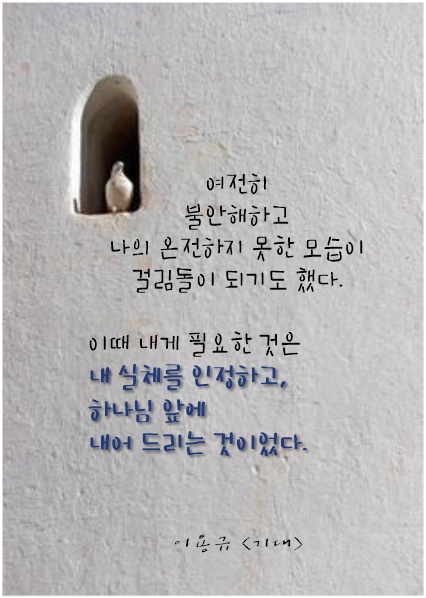 여전히
불안해하고
나의 온전하지 못한 모습이
걸림돌이 되기도 했다.
이때 내게 필요한 것은
내 실체를 인정하고,
하나님 앞에
내어 드리는 것이었다.
이용규 <기대>